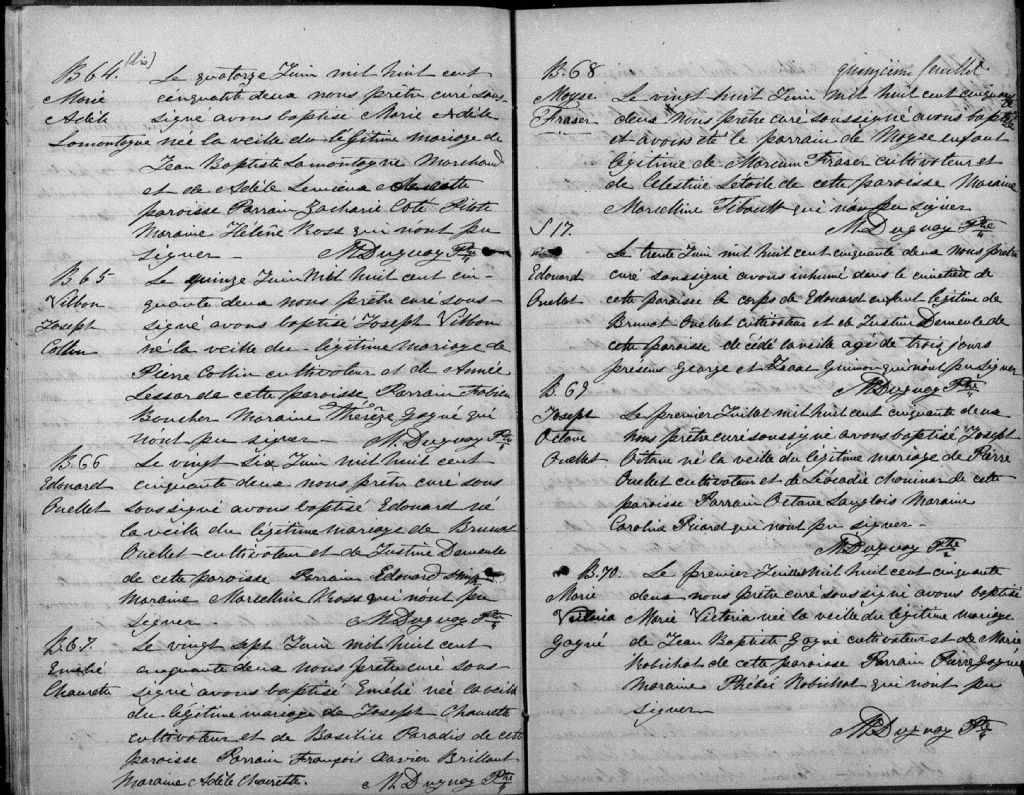 B 64. (bis)
Marie
Adèle
Lamontagne
Le quatorze Juin mil huit cent
cinquante deux nous prêtre curé sous-
signé avons baptisé Marie Adèle
née la veille du légitime mariage de
Jean Baptiste Lamontagne Marchand
et de Adèle de cette
paroisse Parrain Zacharie Coté Pilote
Maraine Hélène Ross qui nont pu
signer — M. Duguay Ptre
B 65
Vilbon
Joseph
Collin
Le quinze Juin Mil huit cent cin-
quante deux nous prêtre curé sous-
signé avons baptisé Joseph Vilbon
né la veille du légitime mariage de
Pierre Collin cultivateur et de Année
Lessar de cette paroisse Parrain Fabien
Boucher Maraine Thérèze Gagné qui
nont pu signer — M. Duguay Ptre
B. 66
Edouard
Ouellet
Le vingt six Juin mil huit cent
cinquante deux nous prêtre curé sous
soussigné avons baptisé Edouard né
la veille du légitime mariage de Brunot
Ouellet cultivateur et de Justine Demeule
de cette paroisse Parrain Edouard
Maraine Marcelline Ross qui nont pu
signer — M. Duguay Ptre
B. 67.
Emélie
Chaurette
Le vingt sept Juin mil huit cent
cinquante deux nous prêtre curé sous-
signé avons baptisé Emélie née la veille
du légitime mariage de Joseph Chaurette
cultivateur et de Basilice Paradis de cette
paroisse Parrain François Xavier Brillant
Maraine Adèle Chaurette. M. Duguay Ptre
quinzième feuillet
B. 68
Moyse
Fraser
Le vingt huit Juin mil huit cent cinquante
deux Nous prêtre curé soussigné avons baptisé
et avons été le parrain de Moyse enfant
légitime de Marium Fraser cultivateur et
de Célestine Letoile de cette paroisse Maraine
Marcelline Tibault qui na pu signer
M Duguay Ptre
S 17.
Edouard
Ouellet
Le trente Juin mil huit cent cinquante deux Nous prêtre
curé soussigné avons inhumé dans le cimetière de
cette paroisse le corps de Edouard enfant légitime de
Brunot Ouellet cultivateur et de Justine Demeule de
cette paroisse décédé la veille agé de trois jours
présens George et Isaac Guimon qui nont pu Signer
M Duguay Ptre
B. 69
Joseph
Octave
Ouellet
Le premier Juillet mil huit cent cinquante deux
nous prêtre curé soussigné avons baptisé Joseph
Octave né la veille du légitime mariage de Pierre
Ouellet cultivateur et de Léocadie Chouinar de cette
paroisse Parrain Octave Langlois Maraine
Caroline Picard qui nont pu signer —
M Duguay Ptre
B. 70.
Marie
Victoria
Gagné
Le premier Juillet Mil huit cent cinquante
deux nous prêtre curé soussigné avons baptisé
Marie Victoria née la veille du légitime mariage
de Jean Baptiste Gagné cultivateur et de Marie
Robichot de cette paroisse Parrain Pierre Gagné
Maraine Phébée Robichot qui nont pu
signer —
M Duguay Ptre